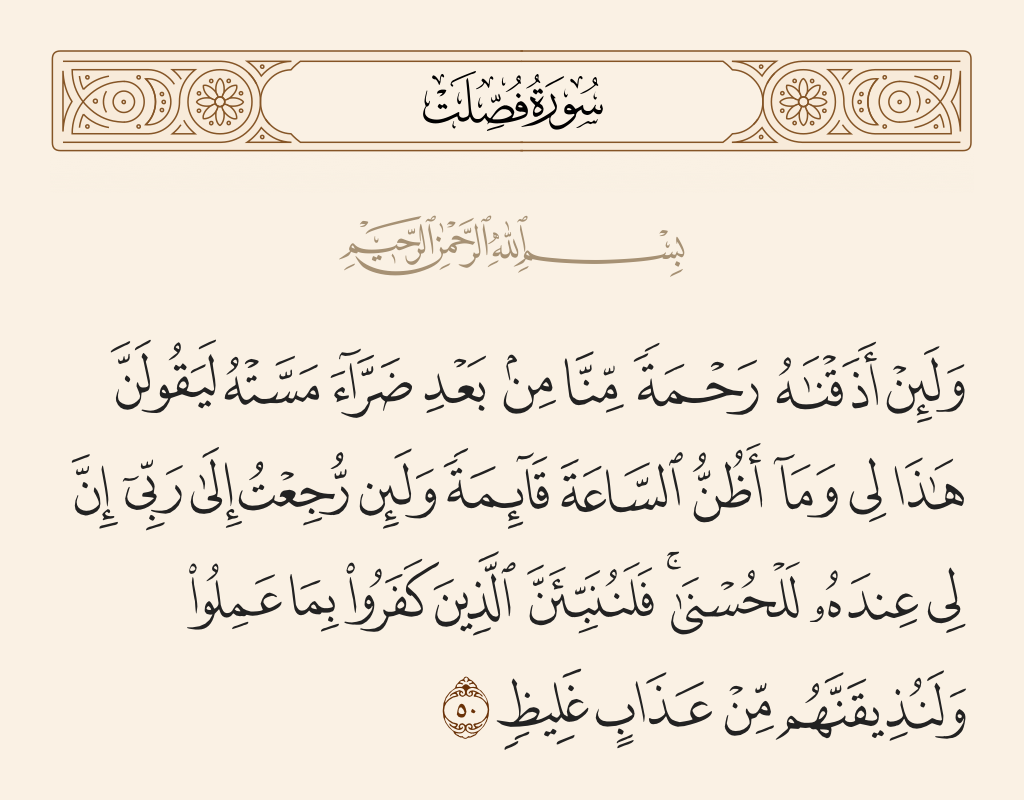 سُورَةُ فُصِّلَتْ
بِسْمِ ٱللَّهِ ٱلرَّحْمَٰنِ ٱلرَّحِيمِ
وَلَئِنْ أَذَقْنَـٰهُ رَحْمَةً مِّنَّا مِنۢ بَعْدِ ضَرَّآءَ مَسَّتْهُ لَيَقُولَنَّ
هَـٰذَا لِى وَمَآ أَظُنُّ ٱلسَّاعَةَ قَآئِمَةً وَلَئِن رُّجِعْتُ إِلَىٰ رَبِّىٓ إِنَّ
لِى عِندَهُۥ لَلْحُسْنَىٰ ۚ فَلَنُنَبِّئَنَّ ٱلَّذِينَ كَفَرُوا۟ بِمَا عَمِلُوا۟
وَلَنُذِيقَنَّهُم مِّنْ عَذَابٍ غَلِيظٍ ٥٠